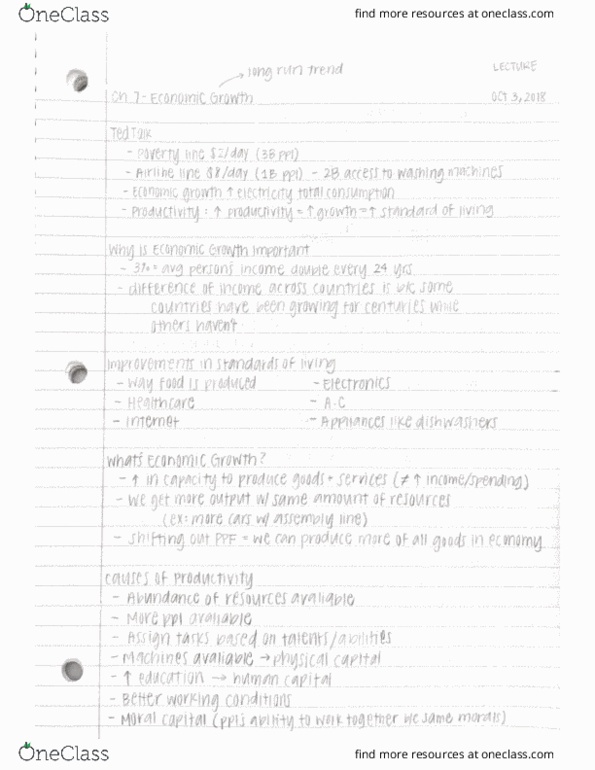 OneClass
find more resources at oneclass.com
long run trend
LECTURE
Ch 7 - Economic Growth
OCT 3, 2018
Ted Talk
- Poverty line $2/day (3B ppl)
- Airline line $8/day (1B ppl) - 2B access to washing machines
- Economic growth ↑ electricity total consumption
- Productivity: ↑ productivity = ↑ growth = ↑ standard of living
Why is Economic Growth Important
- 3% = avg persons income double every 24 yrs
- difference of income across countries is b/c some
countries have been growing for centuries while
others haven't
Improvements in standards of living
- Way food is produced
- Electronics
- Healthcare
- A.C
- Internet
- Appliances like dishwashers
Whats Economic Growth?
- ↑ in capacity to produce goods + services (≠ ↑ income/spending)
- We get more output w/ same amount of resources
(ex: more cars w/ assembly line)
- Shifting out PPF = we can produce more of all goods in economy
Causes of Productivity
- Abundance of resources avaliable
- More ppl avaliable
- Assign tasks based on talents/abilities
- Machines avaliable → physical capital
- ↑ education → human capital
- Better working conditions
- Moral capital (ppls ability to work together b/c same morals)
OneClass
find more resources at oneclass.com